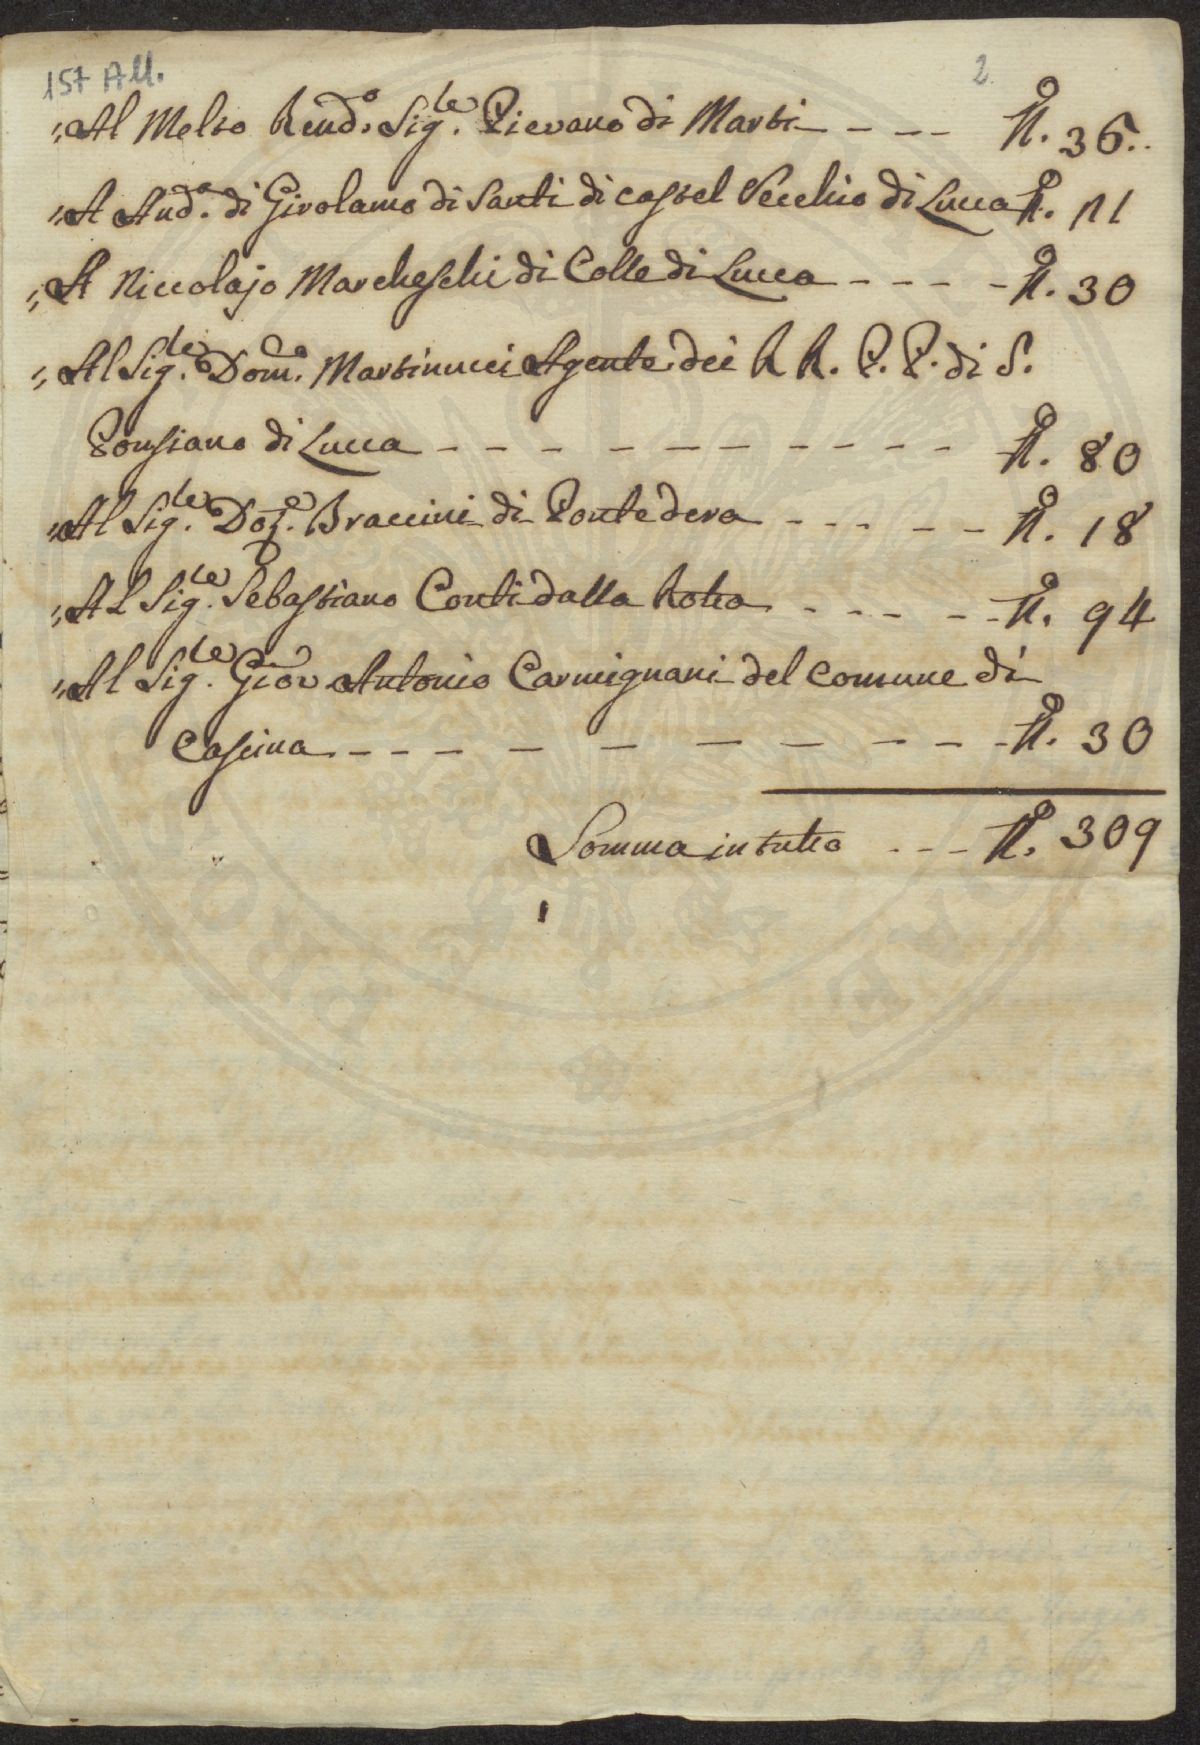 157 All. 2
„ Al Molto Rend.o Sig.le Pievano di Marti - - - - N.o 36..
„ A And.a di Girolamo di Santi di castel Vecchio di Lucca N.o 21
„ A Niccolajo Marcheschi di Colle di Lucca - - - - - N.o 30
„ Al Sig.le Dom.co Martinucci Agente dei R R. P. P. di S.
Ponsiano di Lucca - - - - - - - - - - - N.o 80
„ Al Sig.le Dot.e Braccini di Pontedera - - - - - - N.o 18
„ Al Sig.le Sebastiano Conti dalla Rotta - - - - - - N.o 94
„ Al Sig.le Giov Antonio Carmignani del comune di
Cascina - - - - - - - - - - - - N.o 30
Somma in tutto - - - - N.o 309